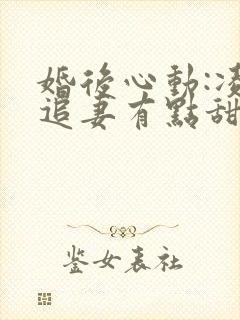 婚後心動:凌
追妻有點甜
鉴女表社